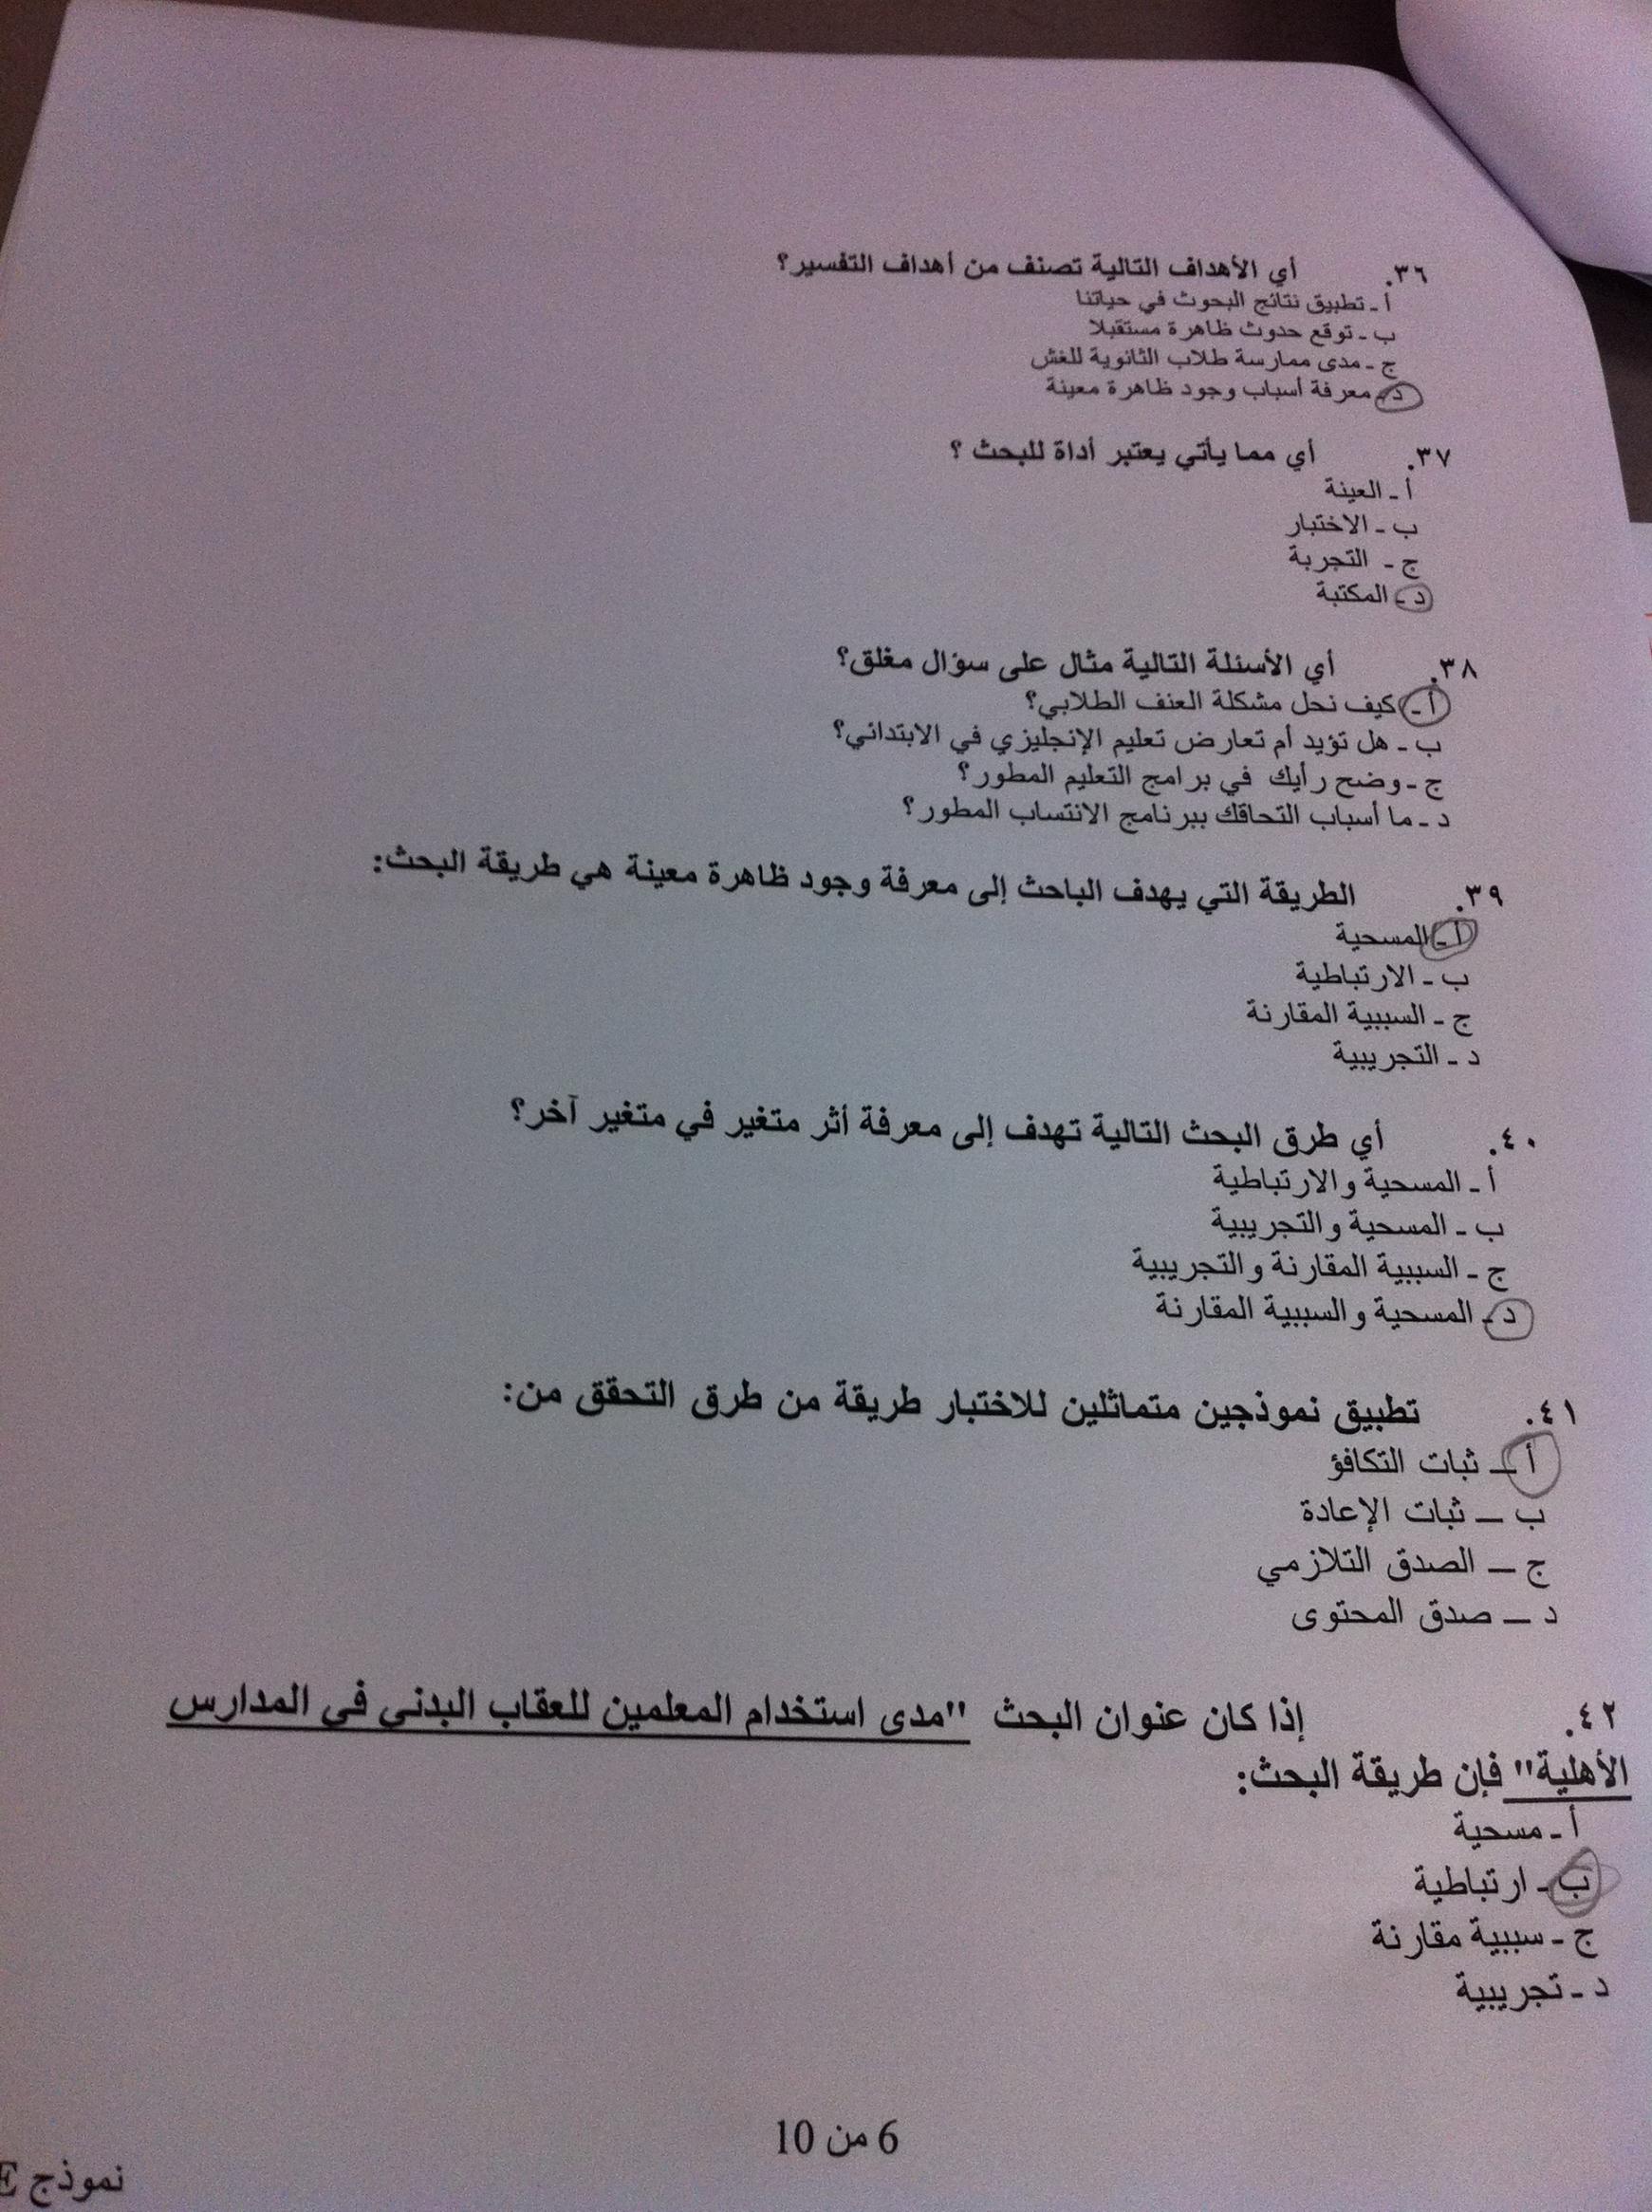 ٣٦. أي الأهداف التالية تصنف من أهداف التفسير؟
أ ـ تطبيق نتائج البحوث في حياتنا
ب ـ توقع حدوث ظاهرة مستقبلا
ج ـ مدى ممارسة طلاب الثانوية للغش
د ـ معرفة أسباب وجود ظاهرة معينة
٣٧. أي مما يأتي يعتبر أداة للبحث ؟
أ ـ العينة
ب ـ الاختبار
ج ـ التجربة
د ـ المكتبة
٣٨. أي الأسئلة التالية مثال على سؤال مغلق؟
أ ـ كيف نحل مشكلة العنف الطلابي؟
ب ـ هل تؤيد أم تعارض تعليم الإنجليزي في الابتدائي؟
ج ـ وضح رأيك في برامج التعليم المطور؟
د ـ ما أسباب التحاقك ببرنامج الانتساب المطور؟
٣٩. الطريقة التي يهدف الباحث إلى معرفة وجود ظاهرة معينة هي طريقة البحث:
أ ـ المسحية
ب ـ الارتباطية
ج ـ السببية المقارنة
د ـ التجريبية
٤٠. أي طرق البحث التالية تهدف إلى معرفة أثر متغير في متغير آخر؟
أ ـ المسحية والارتباطية
ب ـ المسحية والتجريبية
ج ـ السببية المقارنة والتجريبية
د ـ المسحية والسببية المقارنة
٤١. تطبيق نموذجين متماثلين للاختبار طريقة من طرق التحقق من:
أ — ثبات التكافؤ
ب — ثبات الإعادة
ج — الصدق التلازمي
د — صدق المحتوى
٤٢. إذا كان عنوان البحث "مدى استخدام المعلمين للعقاب البدني في المدارس
الأهلية" فإن طريقة البحث:
أ ـ مسحية
ب ـ ارتباطية
ج ـ سببية مقارنة
د ـ تجريبية
6 من 10
نموذج E